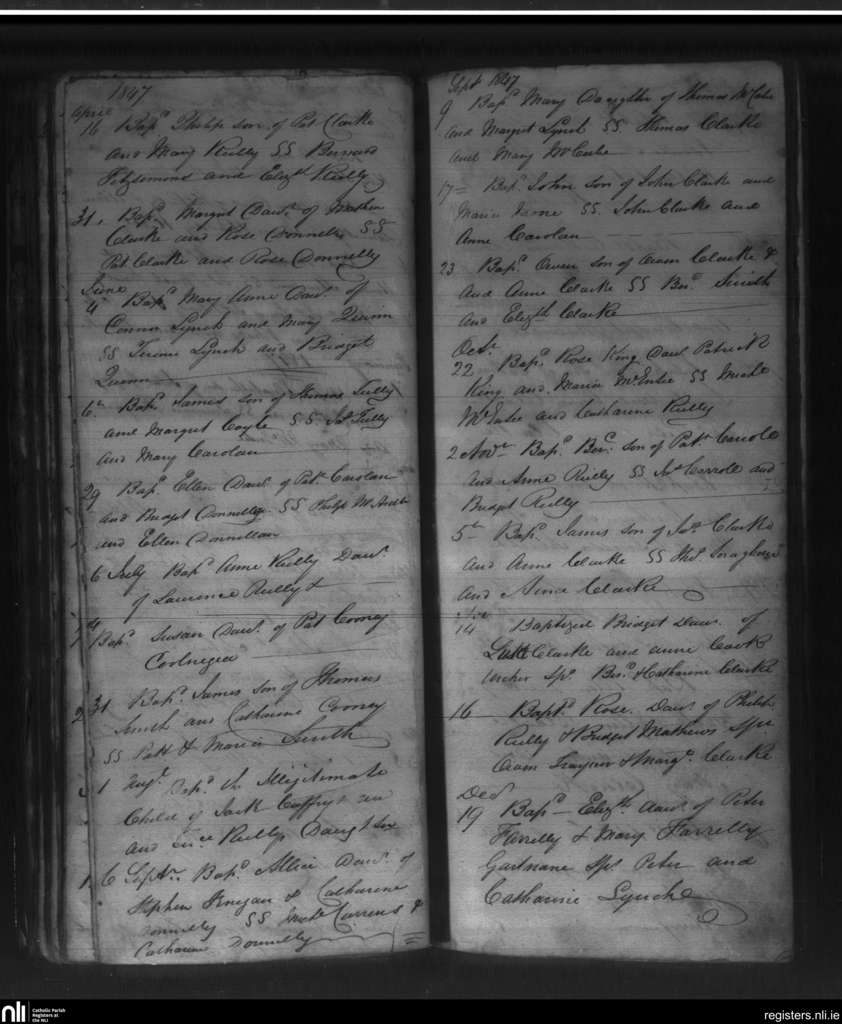 1847
April
16 Bapd Philip son of Pat Clarke
and Mary Reilly SS Bernard
Fitzsimond and Elizth Reilly
31. Bapd Margut Daur of Mathew
Clarke and Rose Donnelly SS
Pat Clarke and Rose Donnelly
June
4 Bapd Mary Anne Daur of
Connor Lynch and Mary Quinn
SS Terence Lynch and Bridget
Quinn
6th Bapd James son of Thomas Tully
and Margut Coyle SS Jas Tully
and Mary Carolan
29 Bapd Ellen Daur of Patk Carolan
and Bridget Donnelly SS Philip McArdle
and Ellen Donnellan
6 July Bapd Anne Reilly Daur
of Laurence Reilly &
Bapd Susan Daur of Pat Cooney
31 Bapd James son of Thomas
Smith and Catharine Cooney
SS Patt & Maria Smith
1 Augt Bapd the Illigitimate
Child of Jack Caffry &
and Reilly Daughter
6 Septr Bapd Allice Daur of
Stephen Finegan & Catharine
Donnelly SS Michl &
Catharine Donnelly
Sept 1847
9 Bapd Mary Daughter of Thomas McCabe
and Margut Lynch SS Thomas Clarke
and Mary McCabe
17 = Bapd John son of John Clarke and
Maria SS. John Clarke and
Anne Carolan
23 Bapd Owen son of Owen Clarke &
and Anne Clarke SS Berd Smith
and Elizth Clarke
Octr
22 Bapd Rose King Daur Patrick
King and Maria McEntee SS Michl
McEntee and Catharine Reilly
2 Novr Bapd Berd son of Patk Carroll
and Anne Reilly SS Jas Carroll and
Bridget Reilly
5th Bapd James son of Jas Clarke
and Anne Clarke SS Thos
and Anne Clarke
14 Baptized Bridget Daur of
Luke Clarke and anne
Spr Berd & Catharine Clarke
16 Baptd Rose Daur of Philip
Reilly & Bridget Mathews Spr
Owen & Margt Clarke
Decr
19 Bapd — Elizth daur of Peter
Farrelly & Mary Farrelly
Gartnane Spr Peter and
Catharine Lynch
nli Catholic Parish
Registers at
the NLI
registers.nli.ie